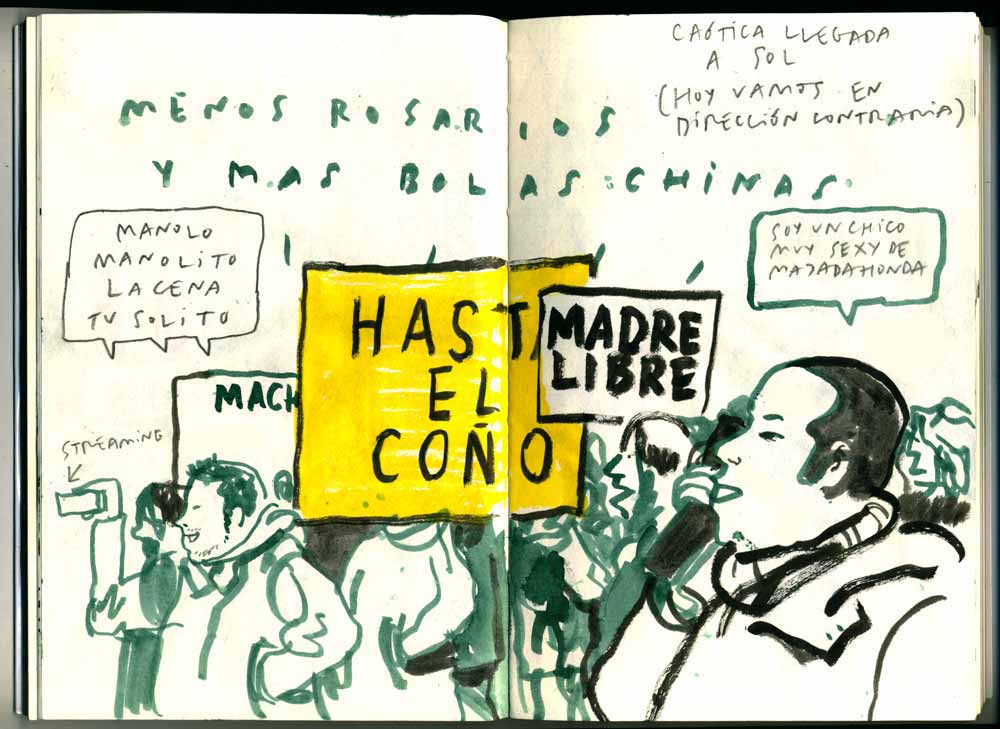 CAÓTICA LLEGADA
A SOL
(HOY VAMOS EN
DIRECCIÓN CONTRARIA)
MENOS ROSARIOS
Y MAS BOLAS CHINAS
MANOLO
MANOLITO
LA CENA
TU SOLITO
SOY UN CHICO
MUY SEXY DE
MAJADAHONDA
HASTA
EL
COÑO
MADRE
LIBRE
MACH
STREAMING